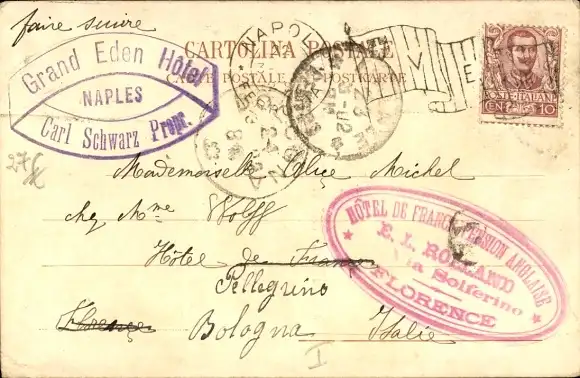 faire suivre
NAPOLI
CARTOLINA POSTALE
CARTE POSTALE POSTKARTE
Grand Eden Hôtel
NAPLES
Carl Schwarz Propr.
POSTE ITALIANE
CENT. 10
Mademoiselle Alice Michel
chez Mme Wolff
Hôtel de France
Pellegrino
Florence
Bologna Italie
HÔTEL DE FRANCE & PENSION ANGLAISE
E. L. ROLLAND
Via Solferino
FLORENCE
I